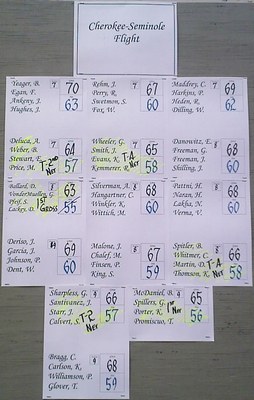 Cherokee-Seminole
Flight
Yeager, B. 7 70
Egan, J.
Ankeny, J. 63
Hughes, J.
Rehm, J. 7 67
Perry, R.
Swetmon, S. 60
Fox, W.
Maddrey, C. 7 69
Harkins, P.
Heden, R. 62
Dilling, W.
Deluca, A. 7 64
Weber, B.
Stewart, E. T-2nd 57
Price, M. Net
Wheeler, G. 7 65
Smith, J.
Evans, K. T-4 58
Kemmerer, R. Net
Danowitz, E. 8 68
Freeman, G.
Freeman, J. 60
Shilling, J.
Ballard, D. 8 63
VonderMeulen, G.
Pfeif, S. 1st 55
Lackey, D. Gross
Silverman, A. 8 68
Hangartner, C.
Winkler, K. 60
Wittich, M.
Pattni, H. 8 68
Nazran, H.
Lakha, N. 60
Verma, V.
Deriso, J. 9 69
Garcia, J.
Johnson, P. 60
Dent, W.
Malone, J. 8 67
Chalef, M.
Finsen, P. 59
King, S.
Spitler, B. 8 66
Whitmer, C.
Martin, D. T-4 58
Thomson, K. Net
Sharpless, G. 9 66
Santivanez, J.
Starr, J. T-2 57
Calvert, S. Net
McDaniel, B. 9 65
Spillers, G. 1st
Porter, K. Net 56
Promiscuo, T.
Bragg, C. 9 68
Carlson, K.
Williamson, P. 59
Glover, T.